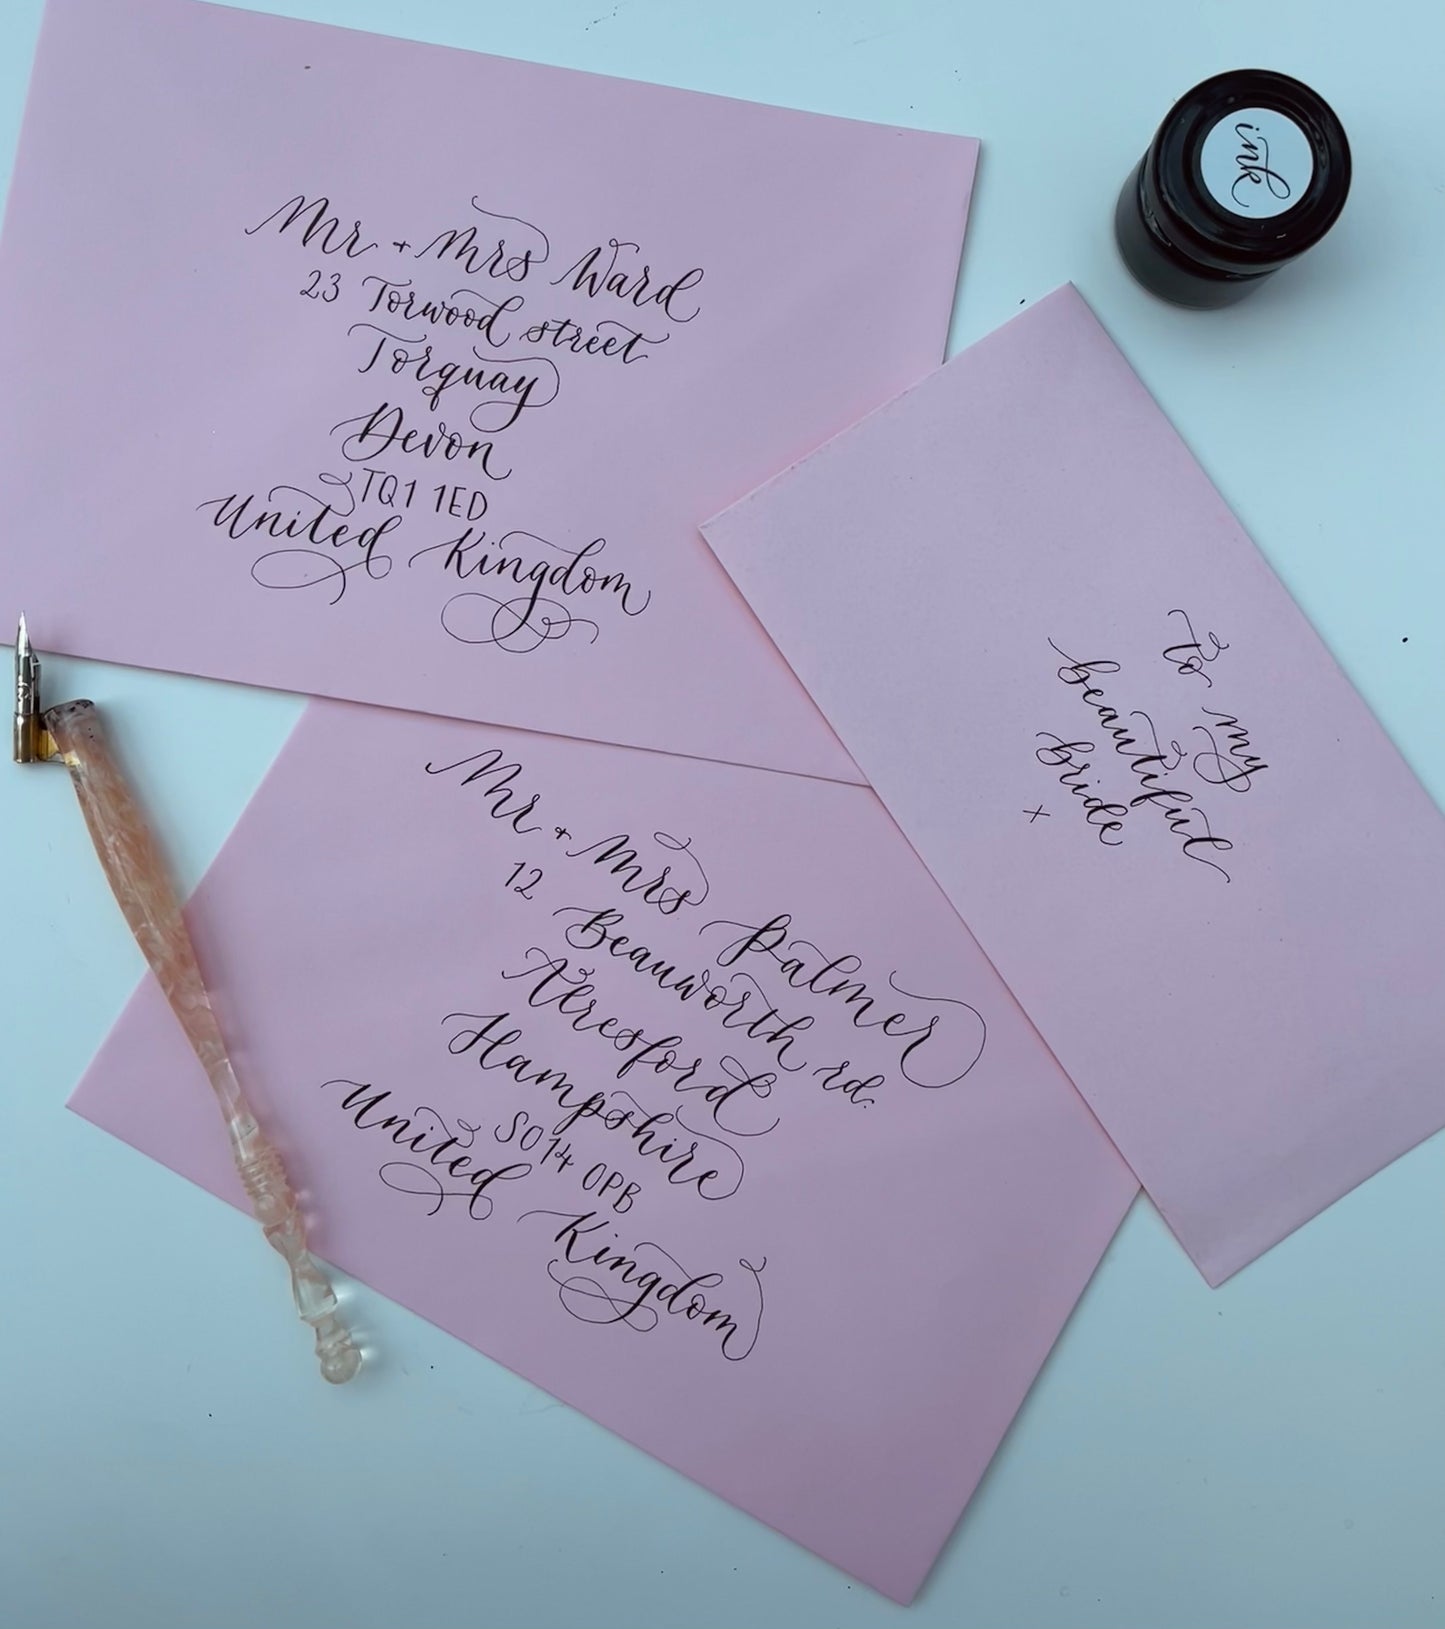 Mr + Mrs Ward
23 Torwood street
Torquay
Devon
TQ1 1ED
United Kingdom
ink
to my
beautiful
bride
x
Mr + Mrs Palmer
12 Beauworth rd.
Alresford
Hampshire
SO14 0PB
United Kingdom